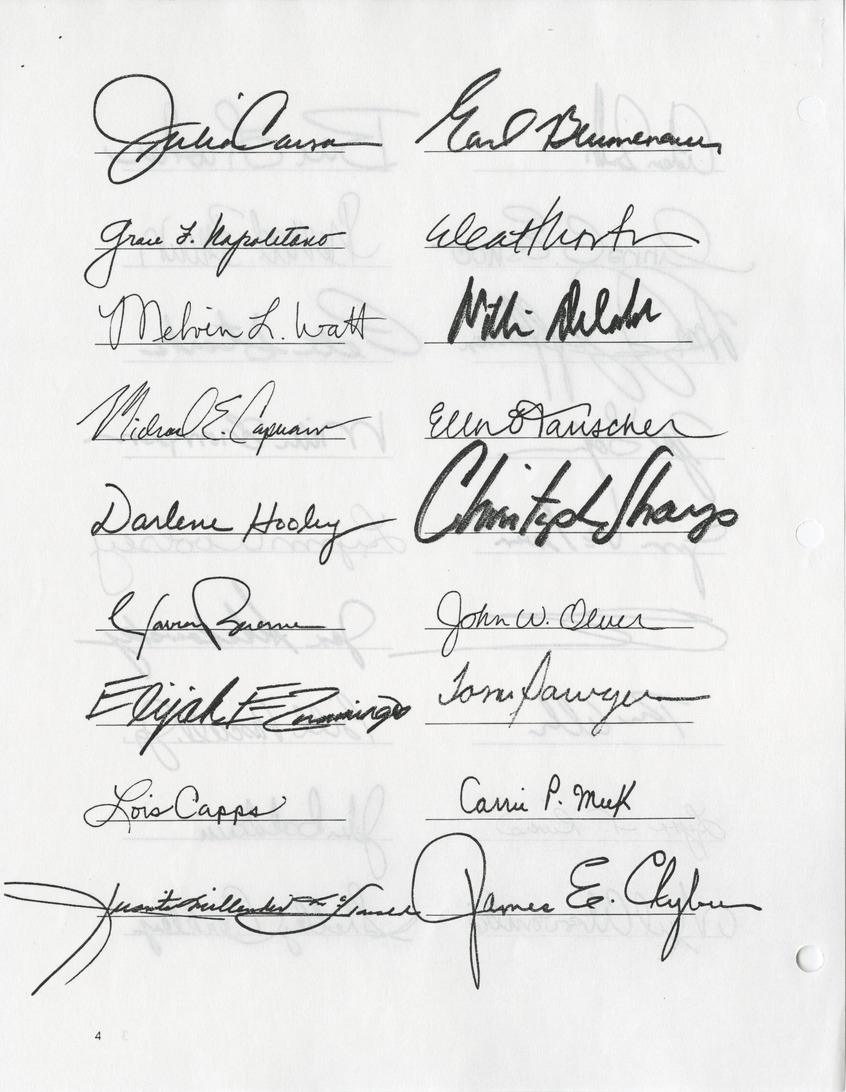 Julia Carson Earl Blumenauer
Grace F. Napolitano
Melvin L. Watt
Michael E. Capuano Ellen O Tauscher
Darlene Hooley Christopher Shays
John W. Olver
Elijah E Cummings Tom Sawyer
Lois Capps Carrie P. Meek
Juanita Millender-McDonald James E. Clyburn
4